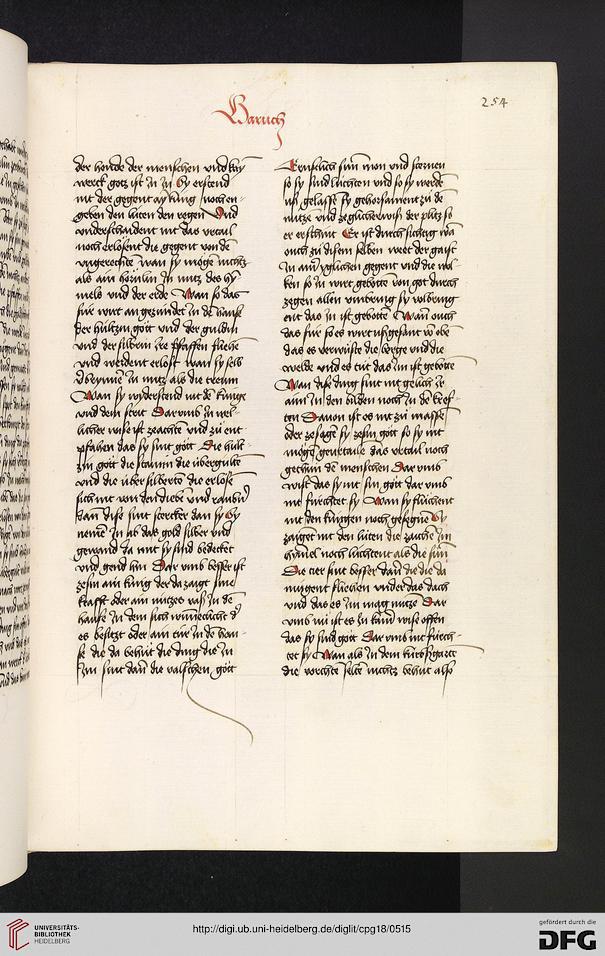 Baruch
254
der hende der menschen vnd kain
werck gotz ist in in Sy erkend
nit der gegent ain kúng noch en-
geben den lúten den regen Vnd
vnderschaident nit das vrtail
noch erlósent die gegent von de
vngerechte wan sy múgen nichtz
als ain
mels vnd der erde Wan so das
fúr wirt an gezúndet in de huse
der húltzin gótt vnd der guldin
vnd der silbrin ire pfaffen fliehe
vnd werdent erlóst wan sy selb
in mitz als die
Wan sy widerstend nit de kúnge
vnd dem strit Dar vmb in wel-
licher wise ist ze achten vnd ze ent
pfahen das sy sint gótt Die húlt-
zin gótt die stainin die úbergulte
vnd die úber silberte die erlóse
sich nit von den dieben vnd
dise sint stercker dan sy Sy
nemen in ab das gold silber vnd
gewand da mit sy sind bedecket
vnd gend hin Dar vmb besser ist
zesin ain kúng der da zaigt sine
krafft oder ain nútzes vass in de
huse in dem sich
es besitzt oder ain túr in de hu-
se die da behút die ding die in
im sint dan die valschen gótt
sunn mon vnd sternen
so sy sind lúchten vnd so sy werde
vss gelasse sy gehorsament zu de
nútze vnd zeglicherwise der plitz so
er erschint Er ist durch sichtig
ouch zu disem selben weet der gaist
in ainr yglichen gegent vnd die wol-
ken so in wirt gebotte von got durch
zegen allen vmbring sy volbring
ent das in ist gebotte Wan ouch
das fúr so es wirt vssgesant von obe
das es verwúste die berge vnd die
welde vnd es tút das im ist gebotte
Wan dise ding sint nit gelich ir
aim in den bilden noch in de kref-
ten Dauon ist es nit zu
oder zesage sy zesin gótt so sy nit
múgen geurtaile das vrtail noch
gethun de menschen Dar vmb
wist das sy nit sin gótt dar vmb
nit fúrchtet sy Wan sy flúchent
nit den kúngen noch gesegnen Sy
zaigent nit den lúten die zaichen im
himel noch lúchtent als die sunn
Die tier sint besser dan die die da
múgent fliehen vnder das dach
vnd das es im mag nútze Dar
vmb nit ist es in kain wise offen
das sy sind gótt Dar vmb nit fúrch-
tet sy Wan als in dem kúrbssgarte
die vorchte selbe nichtz behút also
UNIVERSITÄTS-
BIBLIOTHEK
HEIDELBERG
http://digi.ub.uni-heidelberg.de/diglit/cpg18/0515
gefördert durch die
DFG